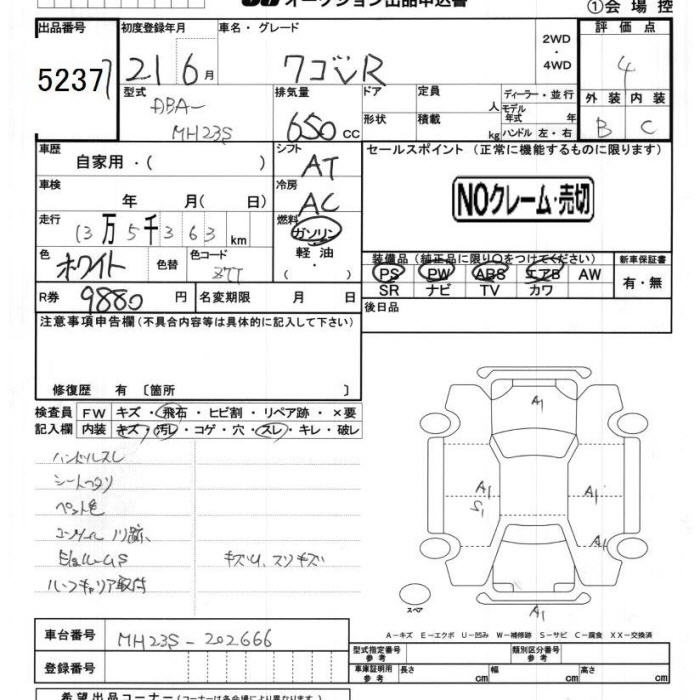 オークション出品申込書
①会場控
出品番号 初度登録年月 車名・グレード 評価点
5237 21 6月 ワゴンR 2WD・4WD 4
型式 排気量 ドア 定員 人 ディーラー・並行 外装 内装
ABA- MH23S 650cc 形状 積載 kg モデル年式 年 ハンドル 左・右 B C
車歴 自家用・( ) シフト AT セールスポイント (正常に機能するものに限ります)
車検 年 月(日) 冷房 AC NOクレーム・売切
走行 13万5千363km 燃料 ガソリン 軽油 (・)
装備品 (純正品に限り○をつけてください) 新車保証書
色 ホワイト 色替 色コード Z7T PS PW ABS エアB AW 有・無
SR ナビ TV カワ
R券 9880円 名変期限 月 日 後日品
注意事項申告欄 (不具合内容等は具体的に記入して下さい)
修復歴 有 〔箇所 〕
検査員 FW キズ・飛石・ヒビ割・リペア跡・×要
記入欄 内装 キズ・汚レ・コゲ・穴・スレ・キレ・破レ
ハンドルスレ
シート汚レ
ペット毛
キズU、スリキズ
ルーフキャリア取付
A1
A1
S1
A1
A1
A1
スペア
A-キズ E-エクボ U-凹み W-補修跡 S-サビ C-腐食 XX-交換済
車台番号 MH23S-202666 型式指定番号 参考 類別区分番号 参考
登録番号 車庫証明用 参考 長さ cm 幅 cm 高さ cm
希望出品コーナー (コーナーは各会場により異なります。)